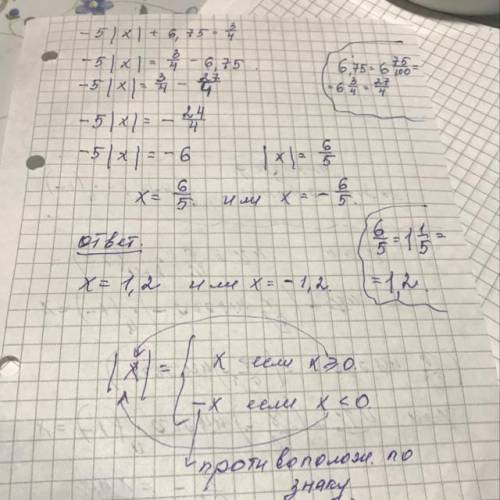 -5|x| + 6,75 = 3/4
-5|x| = 3/4 - 6,75
-5|x| = 3/4 - 27/4
6,75 = 6 75/100 =
= 6 3/4 = 27/4
-5|x| = - 24/4
-5|x| = -6
|x| = 6/5
x = 6/5 или x = - 6/5.
Ответ.
x = 1,2 или x = -1,2
6/5 = 1 1/5 =
= 1,2.
|x| = { x если x ≥ 0.
-x если x < 0.
противополож. по
знаку